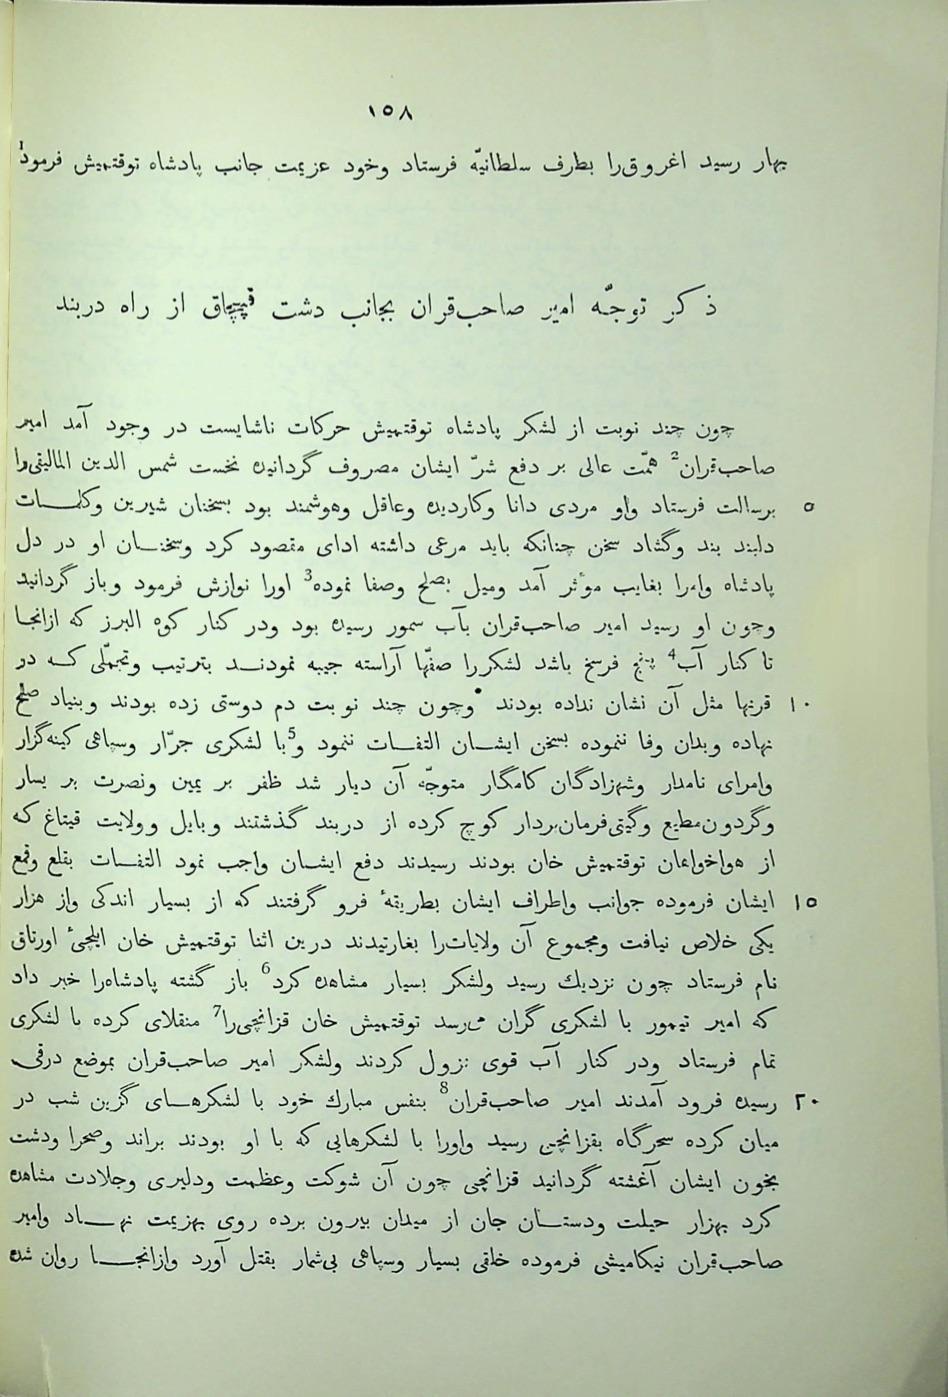 ١٥٨
بهار رسید اغروق‌را بطرف سلطانیّه فرستاد وخود عزیمت جانب پادشاه توقتمیش فرمود1
ذکر توجّه امیر صاحب‌قران بجانب دشت قپچاق از راه دربند
چون چند نوبت از لشکر پادشاه توقتمیش حرکات ناشایست در وجود آمد امیر
صاحب‌قران2 همّت عالی بر دفع شرّ ایشان مصروف گردانیده نخست شمس الدین المالیقی‌را
٥ برسالت فرستاد واو مردی دانا وکاردیده وعاقل وهوشمند بود بسخنان شیرین وکلمات
دلبند بند وگشاد سخن چنانکه باید مرعی داشته ادای مقصود کرد وسخنان او در دل
پادشاه وامرا بغایب مؤثر آمد ومیل بصلح وصفا نموده3 اورا نوازش فرمود وباز گردانید
وچون او رسید امیر صاحب‌قران بآب سمور رسیده بود ودر کنار کوه البرز که ازانجا
تا کنار آب4 پنج فرسخ باشد لشکررا صفّها آراسته جیبه نمودند بترتیب وتجمّلی که در
١٠ قرنها مثل آن نشان نداده بودند • وچون چند نوبت دم دوستی زده بودند وبنیاد صلح
نهاده وبدان وفا ننموده بسخن ایشان التفات ننمود و5با لشکری جرّار وسپاهی کینه‌گزار
وامرای نامدار وشهزادگان کامگار متوجّه آن دیار شد ظفر بر یمین ونصرت بر یسار
وگردون‌مطیع وگیتی‌فرمان‌بردار کوچ کرده از دربند گذشتند وبایل وولایت قیتاغ که
از هواخواهان توقتمیش خان بودند رسیدند دفع ایشان واجب نمود التفات بقلع وقمع
١٥ ایشان فرموده جوانب واطراف ایشان بطریقهٔ فرو گرفتند که از بسیار اندکی واز هزار
یکی خلاص نیافت ومجموع آن ولایات‌را بغارتیدند درین اثنا توقتمیش خان ایلچیٔ اورتاق
نام فرستاد چون نزدیك رسید ولشکر بسیار مشاهده کرد6 باز گشته پادشاه‌را خبر داد
که امیر تیمور با لشکری گران می‌رسد توقتمیش خان قزانچی‌را7 منقلای کرده با لشکری
تمام فرستاد ودر کنار آب قوی نزول کردند ولشکر امیر صاحب‌قران بموضع درقی
٢٠ رسیده فرود آمدند امیر صاحب‌قران8 بنفس مبارك خود با لشکرهای گزین شب در
میان کرده سحرگاه بقزانچی رسید واورا با لشکرهایی که با او بودند براند وصحرا ودشت
بخون ایشان آغشته گردانید قزانچی چون آن شوکت وعظمت ودلیری وجلادت مشاهده
کرد بهزار حیلت ودستان جان از میدان بیرون برده روی بهزیمت نهاد وامیر
صاحب‌قران نیکامیشی فرموده خلقی بسیار وسپاهی بی‌شمار بقتل آورد وازانجا روان شده